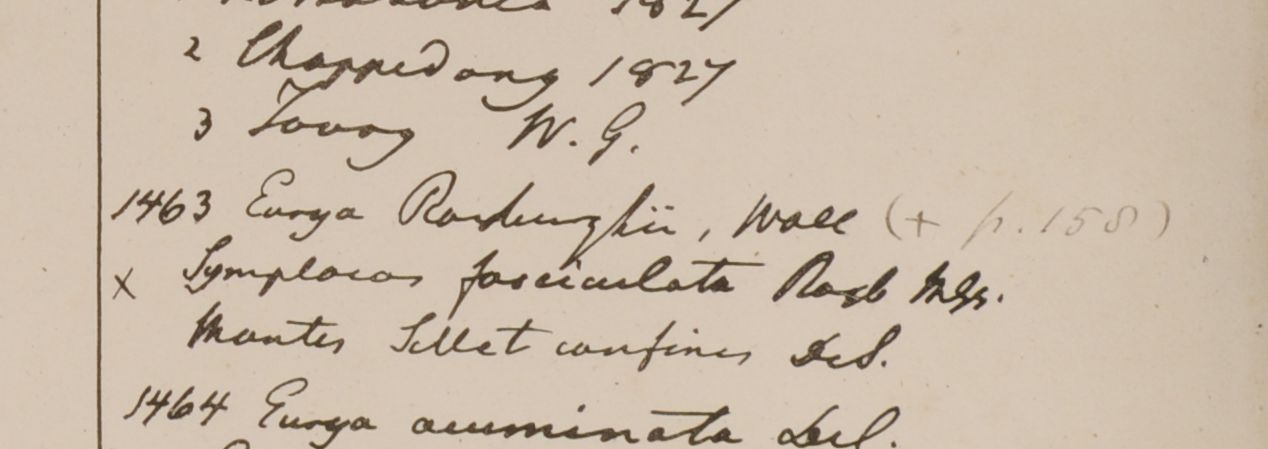 1827
2 Chappedong 1827
3 Tavoy W. G.
1463 Eurya Roxburghii, Wall (+ p. 158)
x Symplocos fasciculata Roxb Mss.
Montes Sillet confines DeS.
1464 Eurya acuminata